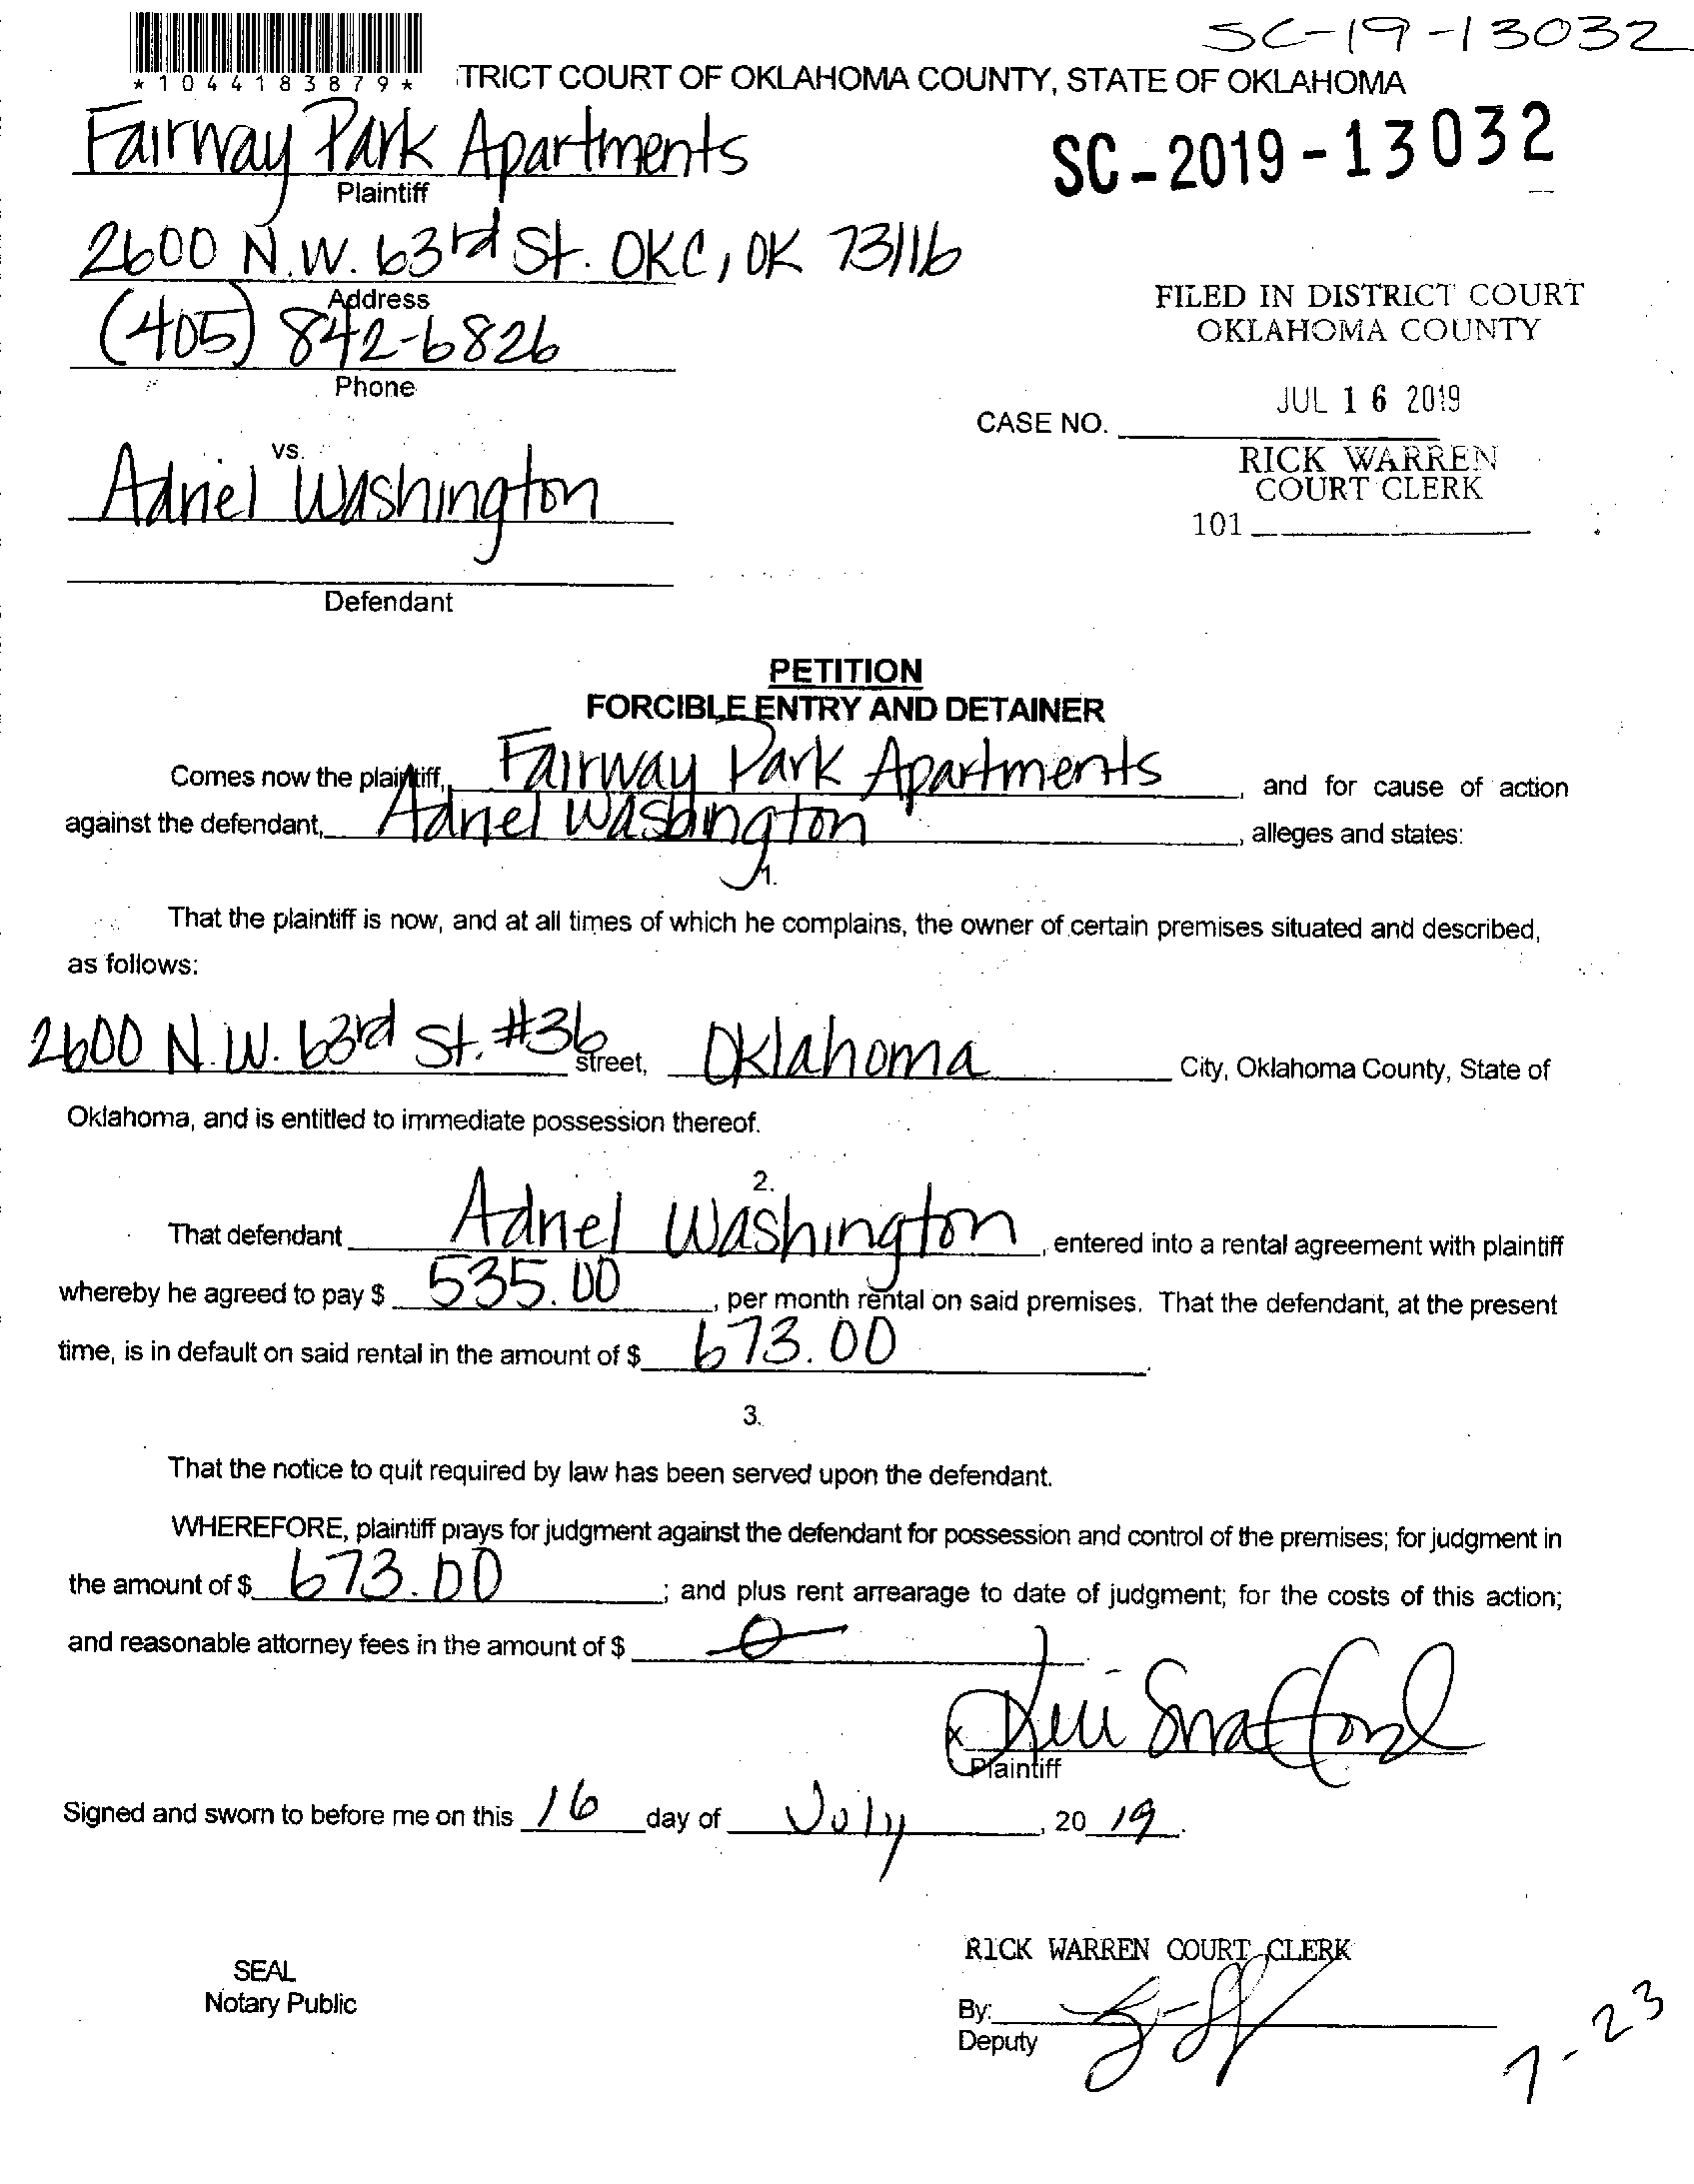 SC-19-13032
*1044183879*
TRICT COURT OF OKLAHOMA COUNTY, STATE OF OKLAHOMA
Fairway Park Apartments
SC-2019-13032
Plaintiff
2600 N.W. 63rd St. OKC, OK 73116
Address
FILED IN DISTRICT COURT
OKLAHOMA COUNTY
(405) 842-6826
Phone
JUL 16 2019
CASE NO.
RICK WARREN
COURT CLERK
101
vs.
Adriel Washington
Defendant
PETITION
FORCIBLE ENTRY AND DETAINER
Comes now the plaintiff, Fairway Park Apartments, and for cause of action
against the defendant, Adriel Washington, alleges and states:
1.
That the plaintiff is now, and at all times of which he complains, the owner of certain premises situated and described,
as follows:
2600 N.W. 63rd St. #36 street, Oklahoma City, Oklahoma County, State of
Oklahoma, and is entitled to immediate possession thereof.
2.
That defendant Adriel Washington, entered into a rental agreement with plaintiff
whereby he agreed to pay $ 535.00, per month rental on said premises. That the defendant, at the present
time, is in default on said rental in the amount of $ 673.00.
3.
That the notice to quit required by law has been served upon the defendant.
WHEREFORE, plaintiff prays for judgment against the defendant for possession and control of the premises; for judgment in
the amount of $ 673.00; and plus rent arrearage to date of judgment; for the costs of this action;
and reasonable attorney fees in the amount of $ 0
x
Plaintiff
Signed and sworn to before me on this 16 day of July, 20 19.
RICK WARREN COURT CLERK
SEAL
Notary Public
By:
Deputy
7-23